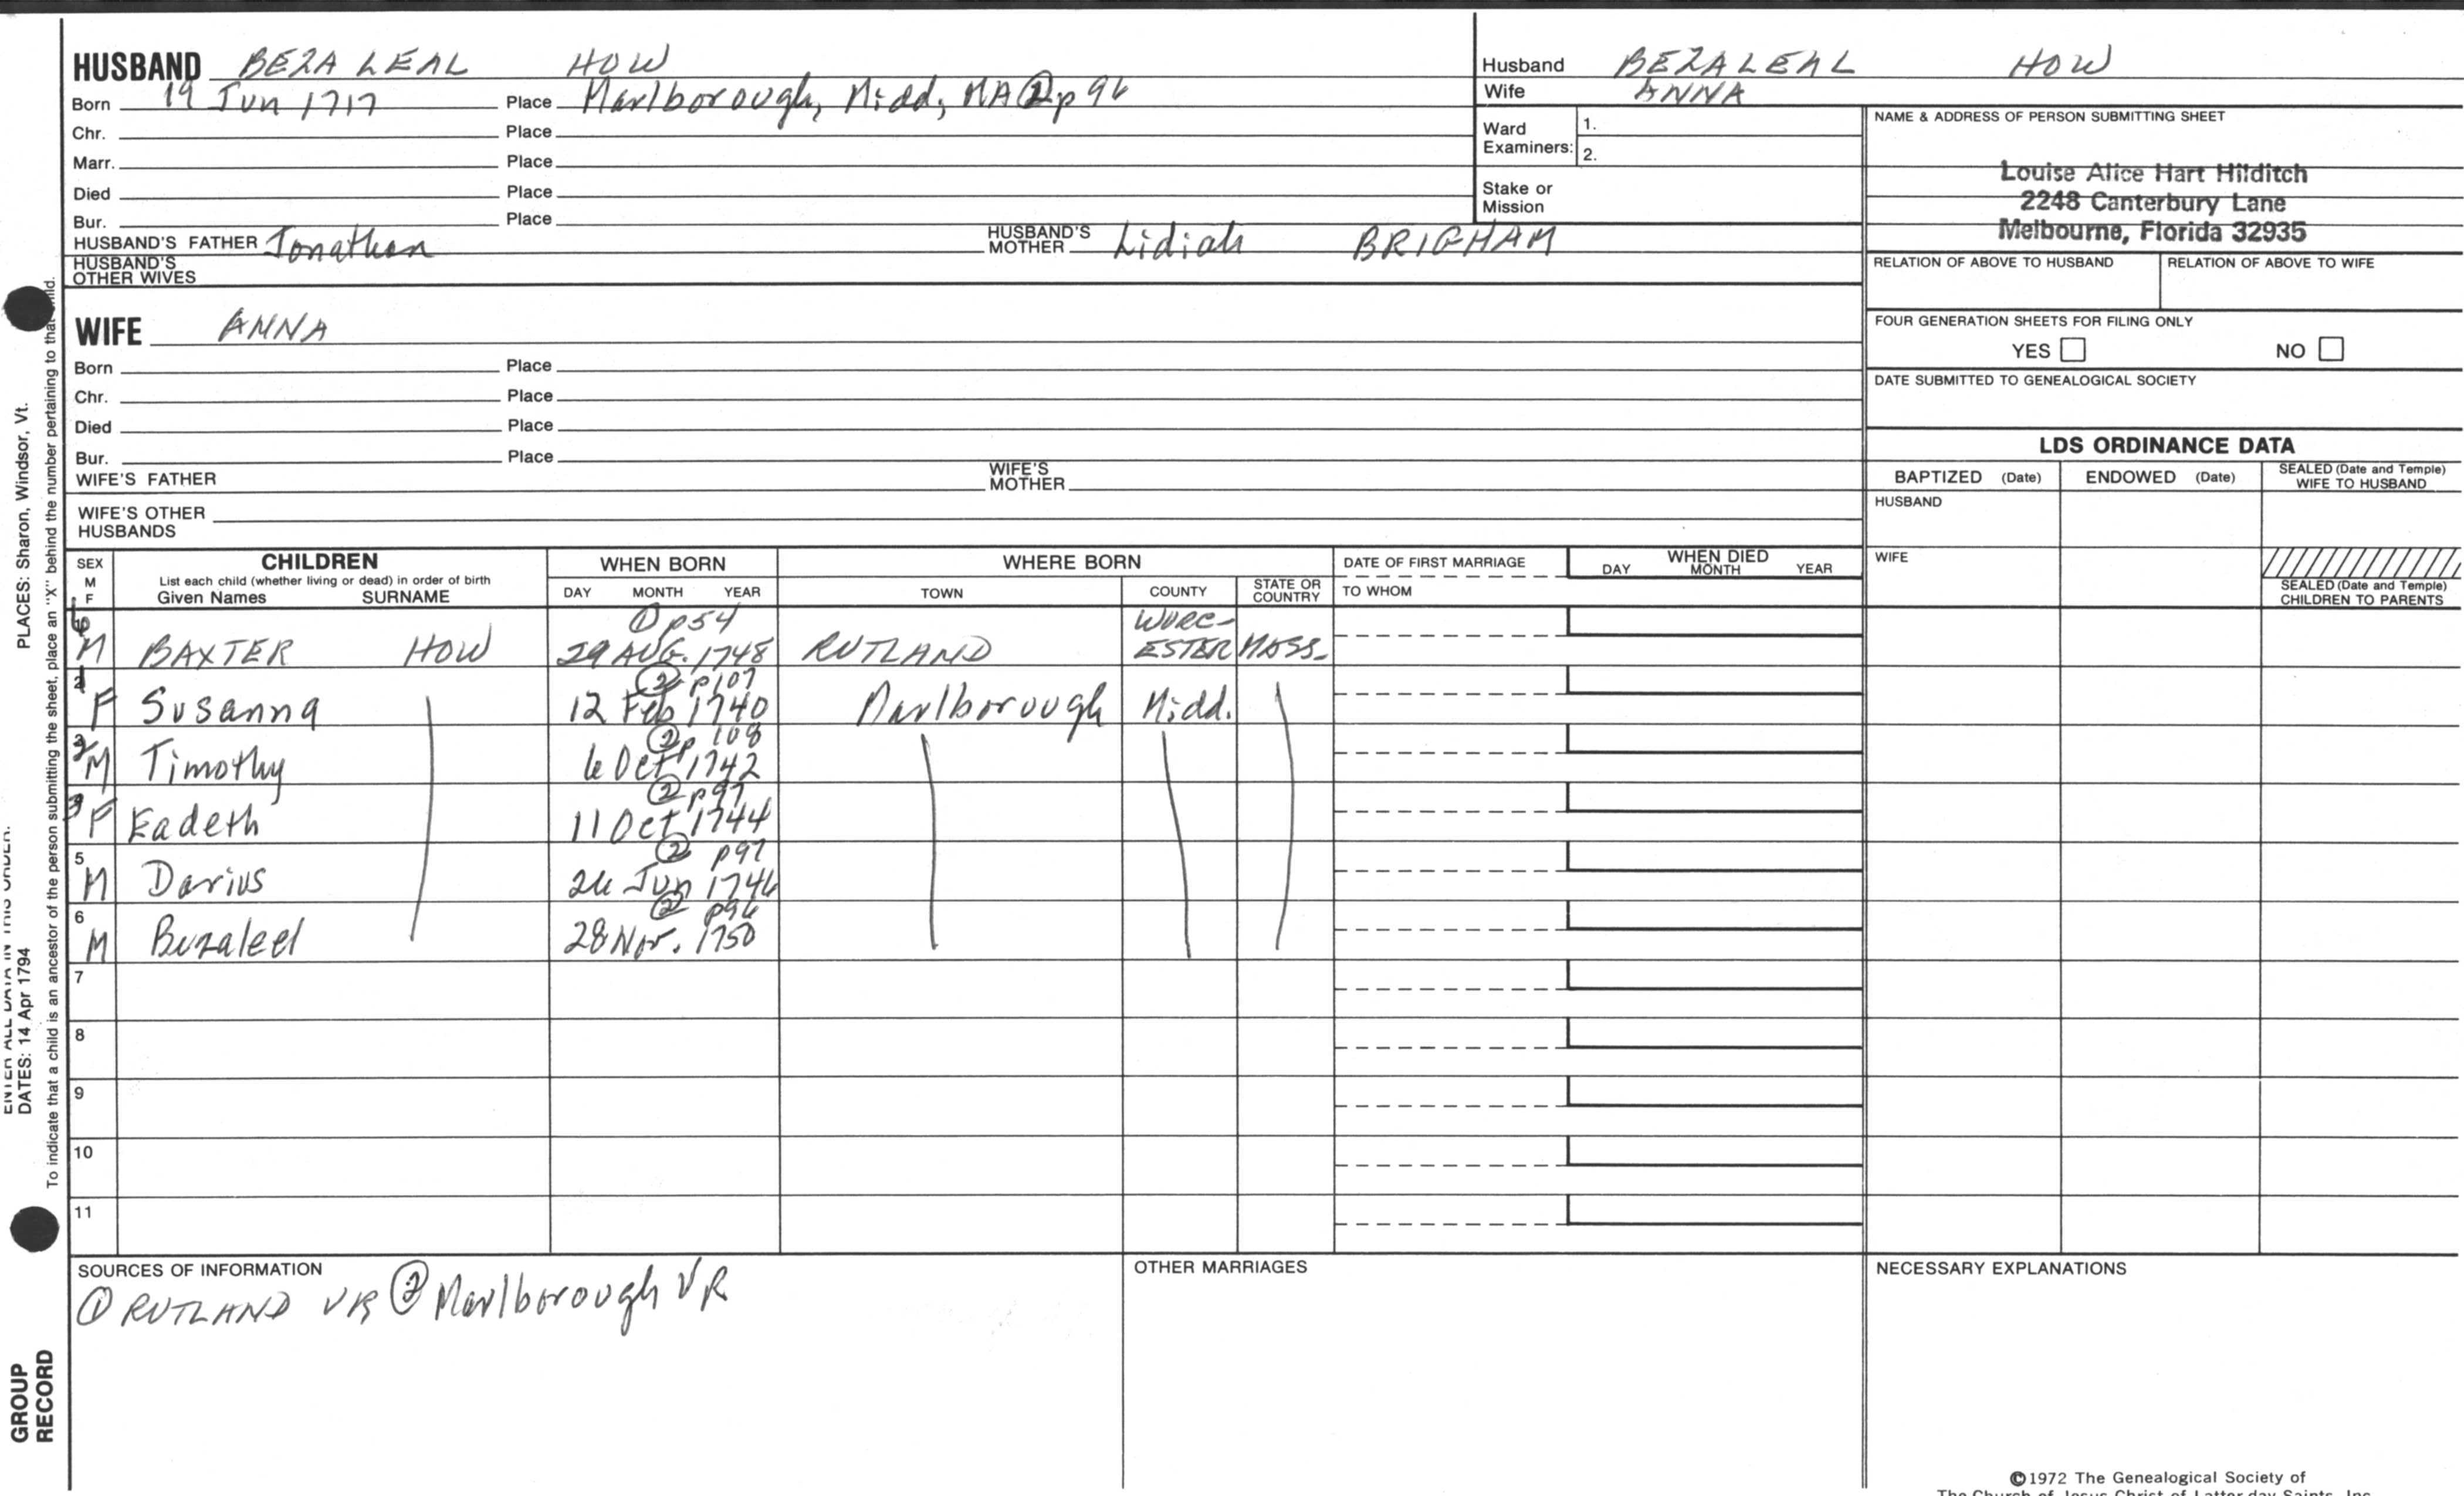 HUSBAND BEZALEAL HOW
Born 19 Jun 1717 Place Marlborough, Midd, MA ② p 96
Chr. Place
Marr. Place
Died Place
Bur. Place
HUSBAND'S FATHER Jonathan HUSBAND'S MOTHER Lidiah BRIGHAM
HUSBAND'S OTHER WIVES
WIFE ANNA
Born Place
Chr. Place
Died Place
Bur. Place
WIFE'S FATHER WIFE'S MOTHER
WIFE'S OTHER HUSBANDS
Husband BEZALEAL HOW
Wife ANNA
Ward Examiners: 1.
2.
Stake or Mission
NAME & ADDRESS OF PERSON SUBMITTING SHEET
Louise Alice Hart Hilditch
2248 Canterbury Lane
Melbourne, Florida 32935
RELATION OF ABOVE TO HUSBAND RELATION OF ABOVE TO WIFE
FOUR GENERATION SHEETS FOR FILING ONLY
YES NO
DATE SUBMITTED TO GENEALOGICAL SOCIETY
LDS ORDINANCE DATA
BAPTIZED (Date) ENDOWED (Date) SEALED (Date and Temple) WIFE TO HUSBAND
HUSBAND
WIFE
SEALED (Date and Temple) CHILDREN TO PARENTS
SEX M F CHILDREN WHEN BORN WHERE BORN DATE OF FIRST MARRIAGE WHEN DIED
List each child (whether living or dead) in order of birth
Given Names SURNAME DAY MONTH YEAR TOWN COUNTY STATE OR COUNTRY TO WHOM DAY MONTH YEAR
① p54
M BAXTER HOW 29 AUG. 1748 RUTLAND WORC-ESTER MASS.
② p107
1 F Susanna 12 Feb 1740 Marlborough Midd.
② p 108
2 M Timothy 6 Oct 1742
② p97
3 F Eadeth 11 Oct 1744
② p97
5 M Darius 26 Jun 1746
② p96
6 M Bezaleel 28 Nov. 1750
7
8
9
10
11
SOURCES OF INFORMATION
① RUTLAND VR ② Marlborough VR
OTHER MARRIAGES
NECESSARY EXPLANATIONS
©1972 The Genealogical Society of
The Church of Jesus Christ of Latter-day Saints, Inc.
PLACES: Sharon, Windsor, Vt.
ENTER ALL DATA IN THIS ORDER:
DATES: 14 Apr 1794
To indicate that a child is an ancestor of the person submitting the sheet, place an "X" behind the number pertaining to that child.
GROUP
RECORD